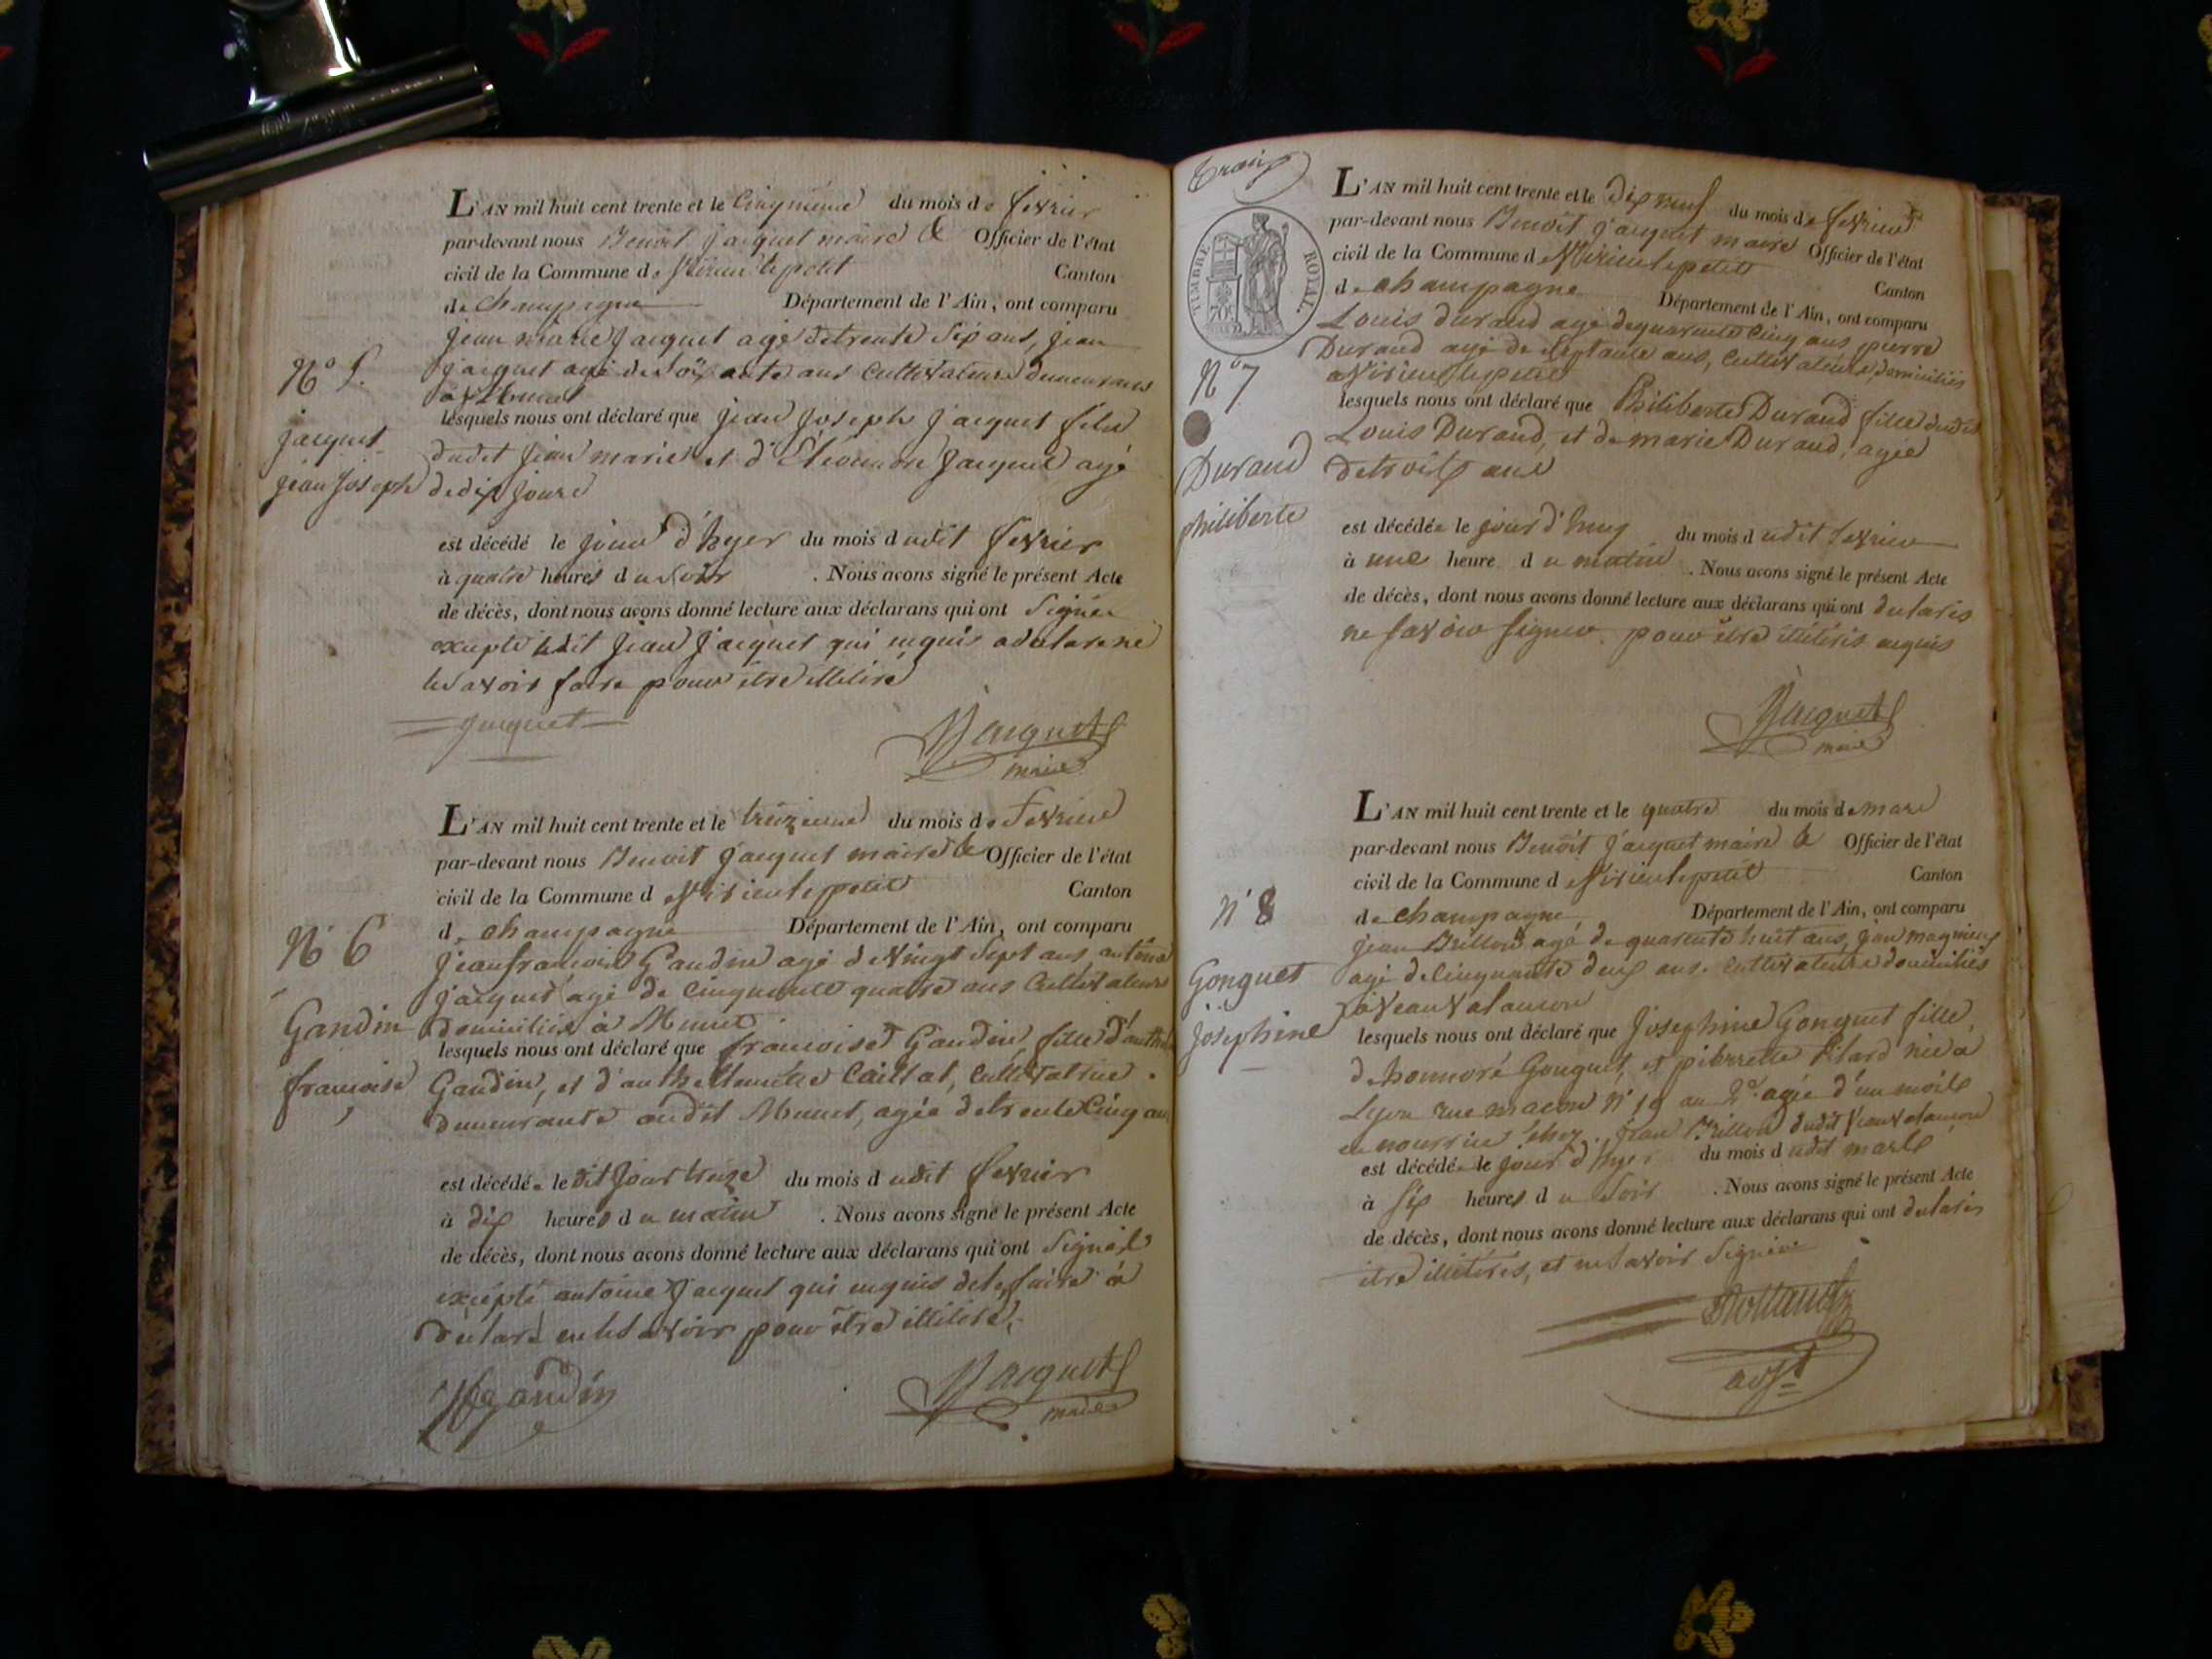 L'AN mil huit cent trente et le Cinquieme du mois de fevrier
par-devant nous Benoit Jacquet maire & Officier de l'état
civil de la Commune de Virieu le petit Canton
de Champagne Département de l'Ain, ont comparu
Jean marie Jacquet agé de trente Sept ans, Jean
Jacquet agé de Soixante ans Cultivateurs demeurans
N° 5.
a Munet
lesquels nous ont déclaré que Jean Joseph Jacquet fils
Jacquet
dudit Jean marie et d'Eléonore Jacquet agé
Jean Joseph
de dix Jours
est décédé le Jour d'hyer du mois dudit fevrier
à quatre heures du Soir . Nous avons signé le présent Acte
de décès, dont nous avons donné lecture aux déclarans qui ont Signés
excepté ledit Jean Jacquet qui requis a declaré ne
le Savoir faire pour être illitiré
Jacquet
Jacquet
maire
L'AN mil huit cent trente et le treizieme du mois de Fevrier
par-devant nous Benoit Jacquet maire & Officier de l'état
civil de la Commune de Virieu le petit Canton
N° 6
de Champagne Département de l'Ain, ont comparu
Jean francois Gaudin agé de Vingt Sept ans, antoine
Jacquet agé de Cinquante quatre ans Cultivateurs
Gandin
domiciliés à Munet
lesquels nous ont déclaré que francoise Gaudin, fille d'anthel
francoise
Gaudin, et d'anthelmette Caillat, Cultivatrice
demeurante audit Munet, agée de trente Cinq ans
est décédée ledit Jour treize du mois dudit fevrier
à dix heures du matin . Nous avons signé le présent Acte
de décès, dont nous avons donné lecture aux déclarans qui ont Signés
excepté antoine Jacquet qui requis de le faire à
déclaré ne le Savoir pour être illitiré.
Jf gandin
Jacquet
maire
Trois
TIMBRE ROYAL.
70C
L'AN mil huit cent trente et le Dix neuf du mois de fevrier
par-devant nous Benoit Jacquet maire Officier de l'état
civil de la Commune de Virieu le petit Canton
de Champagne Département de l'Ain, ont comparu
Louis durand agé de quarante Cinq ans, pierre
Durand agé de Septante ans, Cultivateurs, domiciliés
N° 7
a Virieu le petit
lesquels nous ont déclaré que Philiberte Durand fille dudit
Louis Durand, et de marie Durand, agée
Durand
de trois ans
philiberte
est décédée le Jour d'huy du mois dudit fevrier
à une heure du matin . Nous avons signé le présent Acte
de décès, dont nous avons donné lecture aux déclarans qui ont declarés
ne Savoir Signer pour être illitérés requis
Jacquet
maire
L'AN mil huit cent trente et le quatre du mois de mars
par-devant nous Benoit Jacquet maire & Officier de l'état
civil de la Commune de Virieu le petit Canton
N° 8
de Champagne Département de l'Ain, ont comparu
Jean Billon agé de quarente huit ans, Jean
agé de Cinquante deux ans. Cultivateurs domiciliés
Gonguet
Josephine
lesquels nous ont déclaré que Josephine Gonguet fille
d'honnoré Gonguet, et pierrette Pitard née a
Lyon rue macon N° 19 au 2e agée d'un mois
en nourrice chez Jean Billon dudit
est décédée le Jour d'hyer du mois dudit mars
à Six heures du Soir . Nous avons signé le présent Acte
de décès, dont nous avons donné lecture aux déclarans qui ont declarés
être illitérés, et ne Savoir Signer
adjt